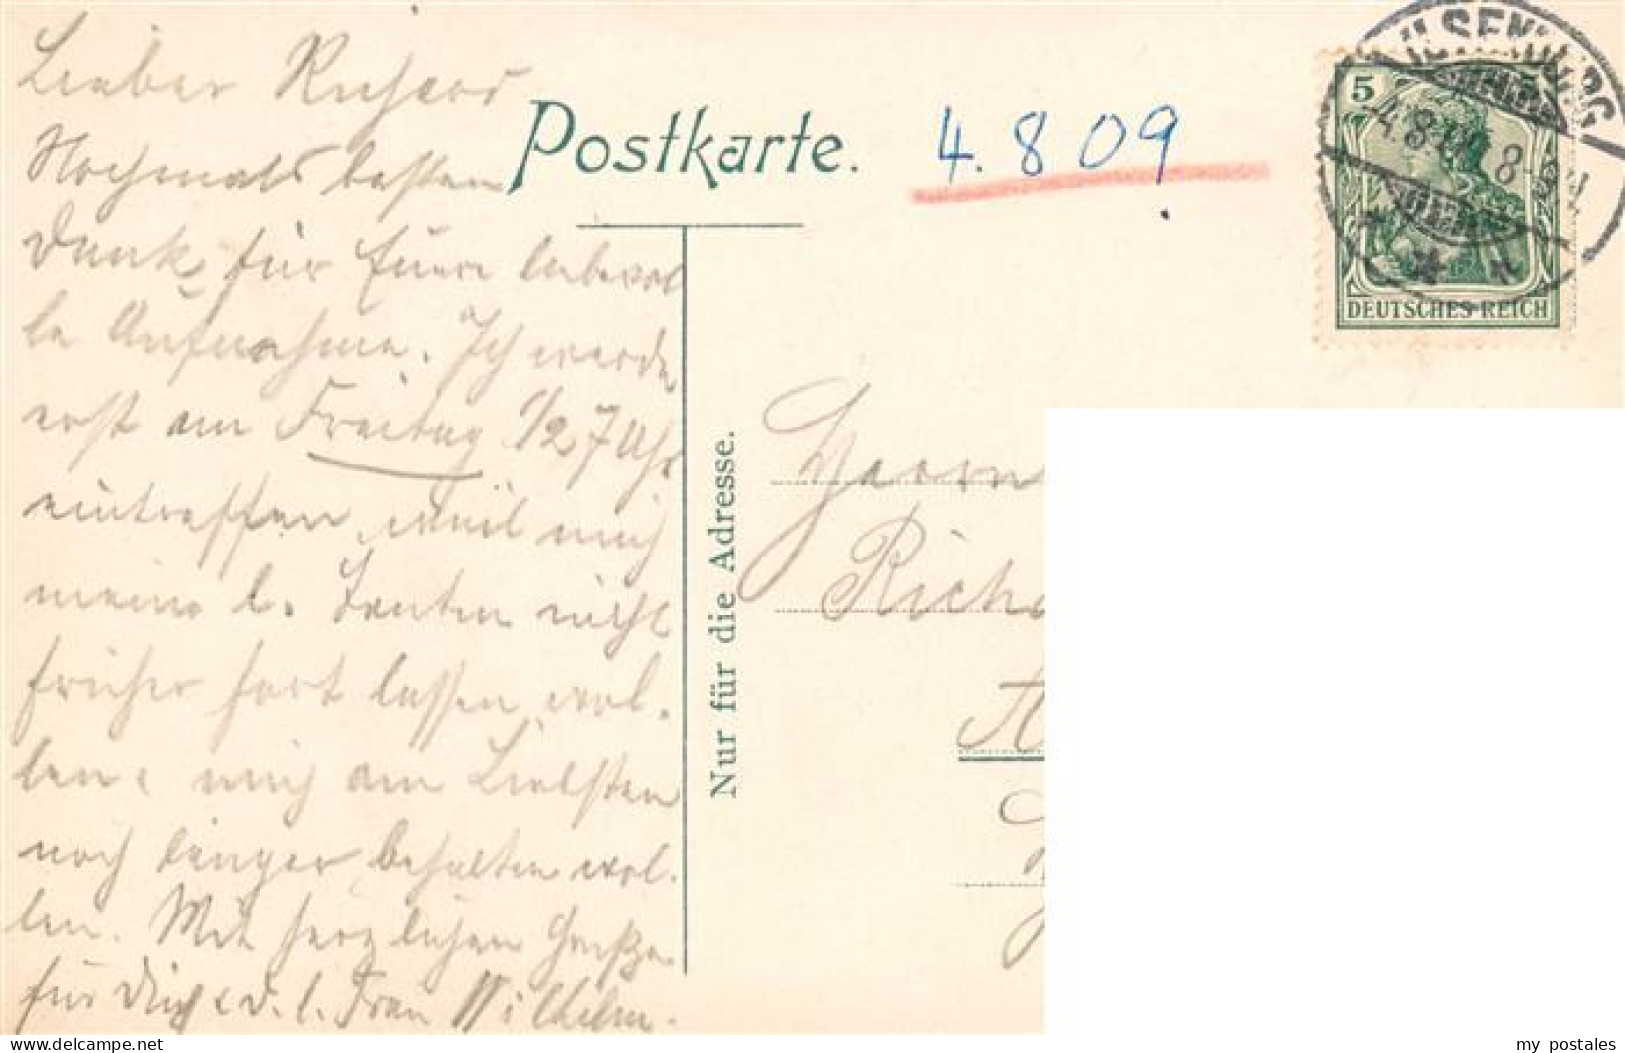 Lieber Richard
Nochmals besten
Dank für Euere liebevol
le Aufnahme. Ich werde
erst am Freitag 1/2 7 Uhr
eintreffen, weil mich
meine l. Tanten nicht
früher fort lassen wol-
len & mich am Liebsten
noch länger behalten wol-
len. Mit herzlichen Grüßen
für Dich & d. l. Frau Wilhelm.
Postkarte.
4. 8 09
ILSENBURG
4.8.09 8-9 V
5
DEUTSCHES REICH
Nur für die Adresse.
Herrn
Richa
delcampe.net
my_postales